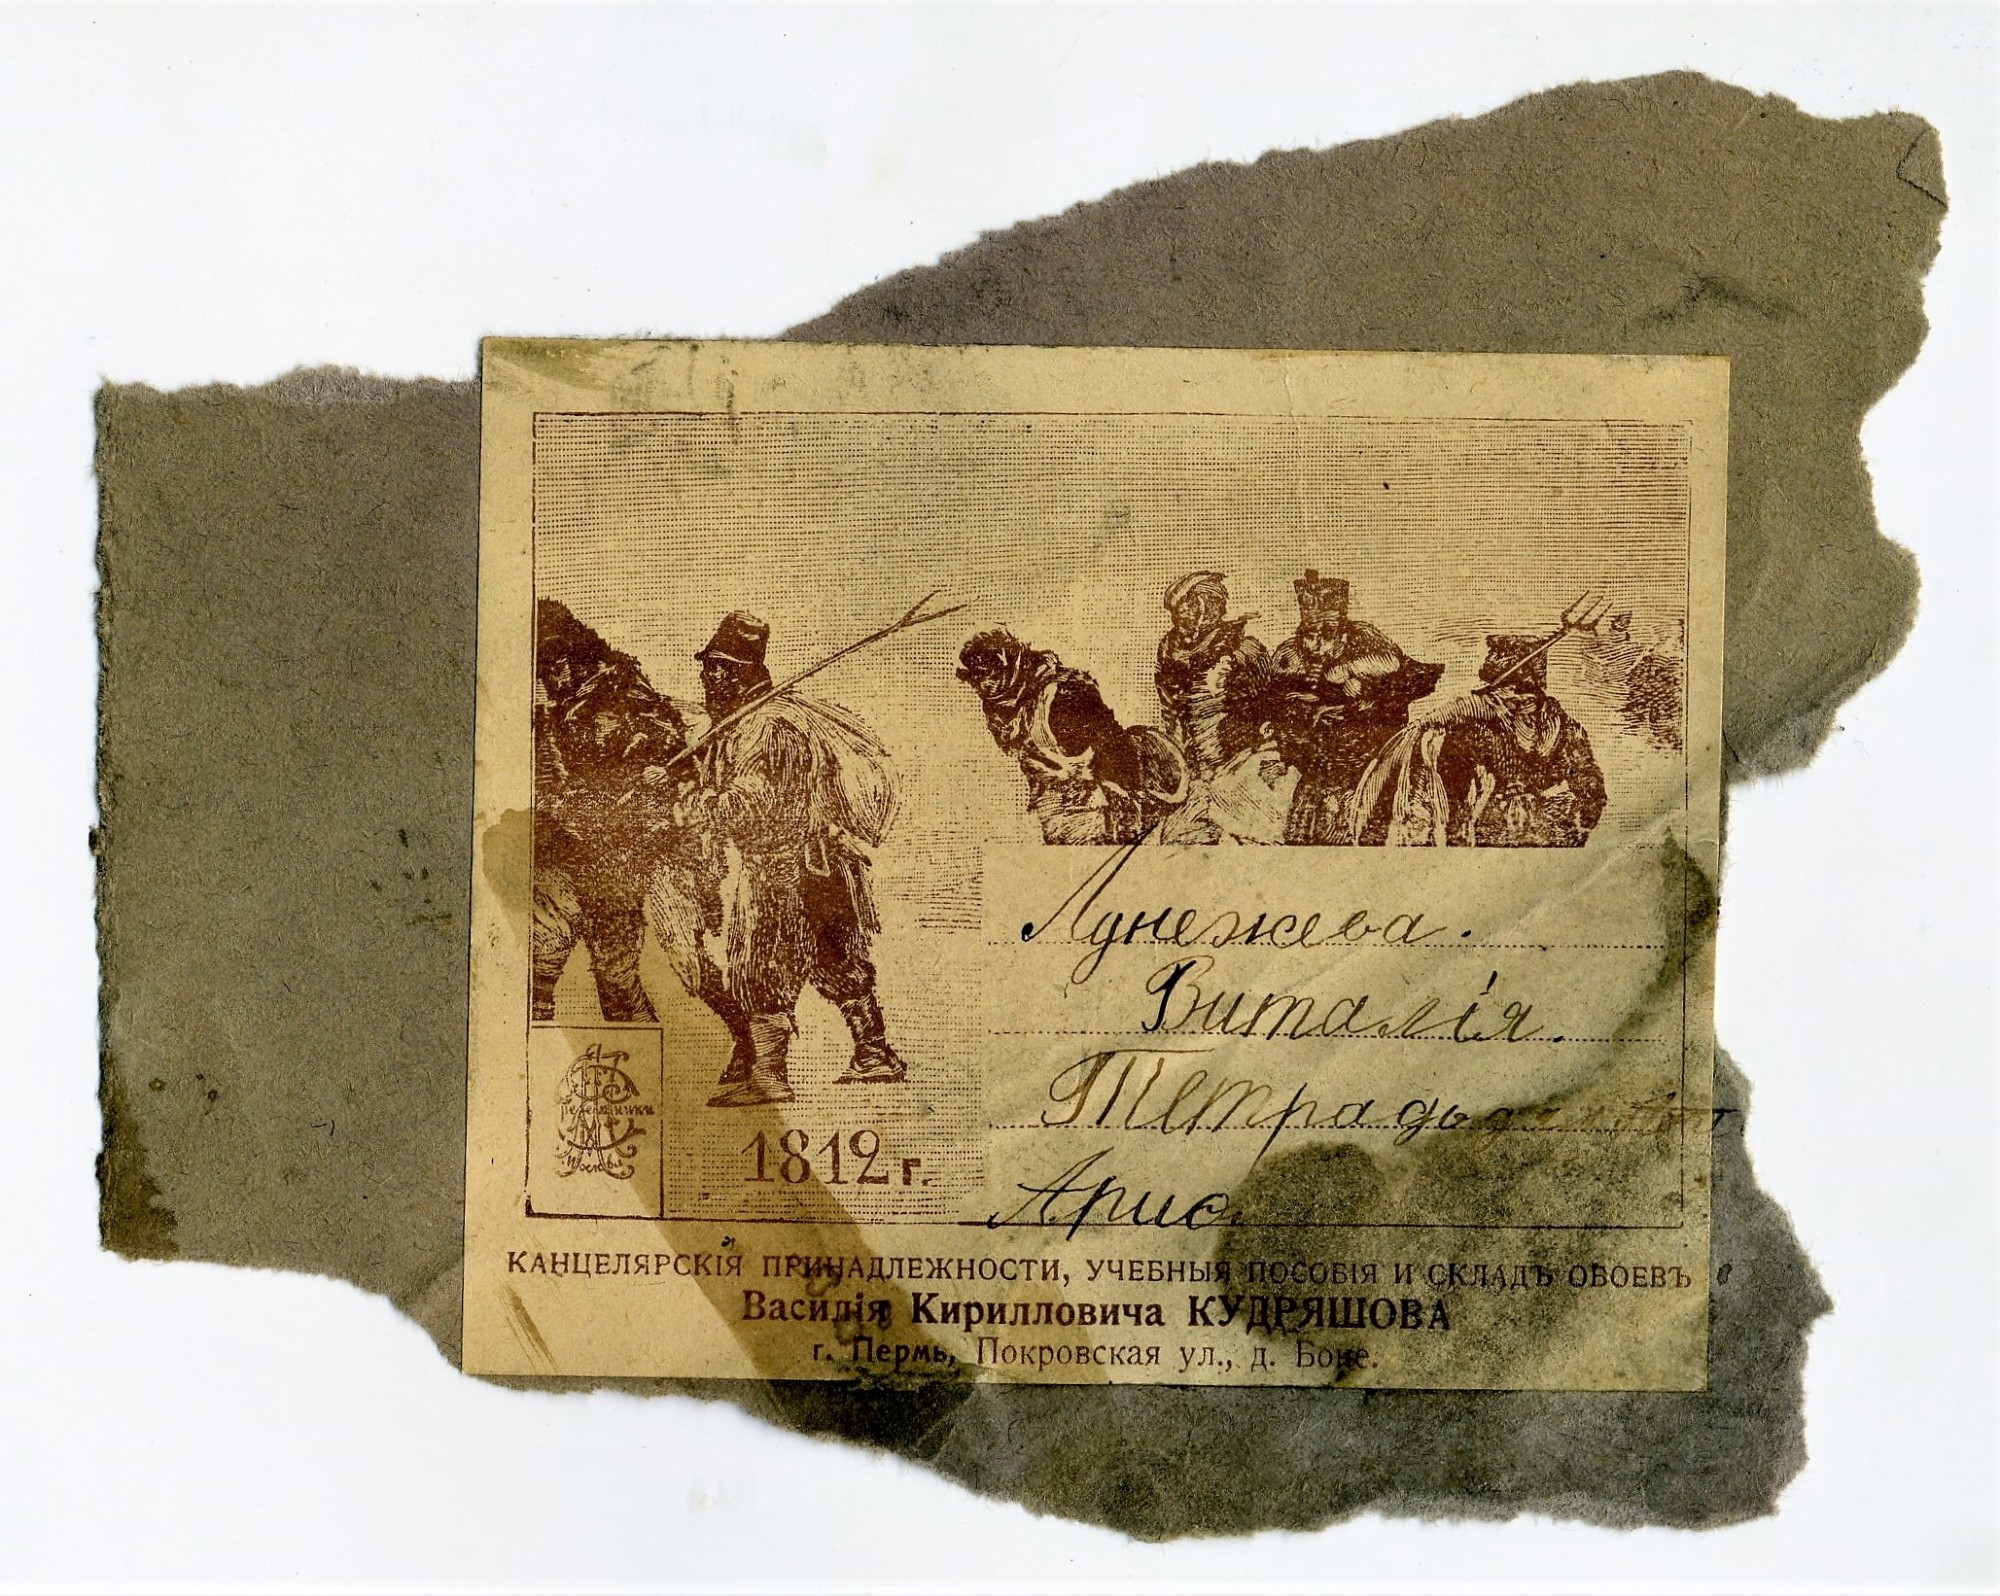 Лунежева.
Виталія.
Тетрадь
Арио
1812 г.
КАНЦЕЛЯРСКІЯ ПРИНАДЛЕЖНОСТИ, УЧЕБНЫЯ ПОСОБІЯ И СКЛАДЪ ОБОЕВЪ
Василія Кирилловича КУДРЯШОВА
г. Пермь, Покровская ул., д. Боне.